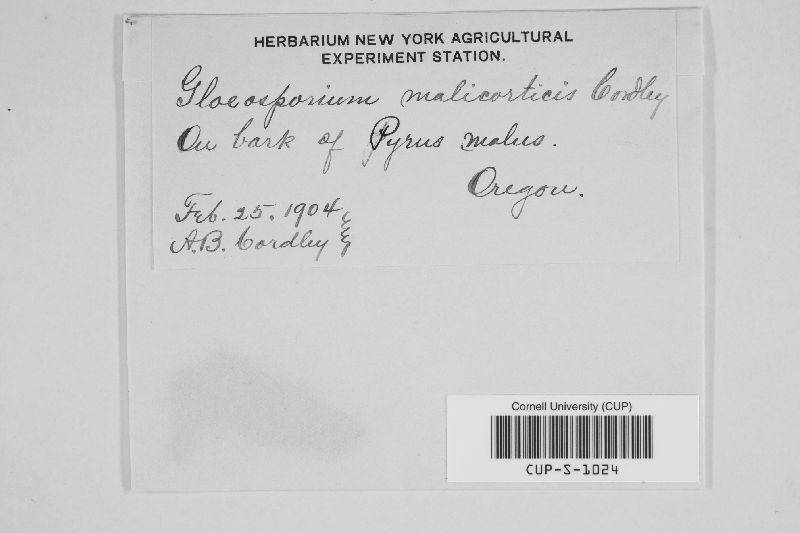 HERBARIUM NEW YORK AGRICULTURAL
EXPERIMENT STATION.
Gloeosporium malicorticis Cordley
On bark of Pyrus malus.
Oregon.
Feb. 25, 1904
A.B. Cordley
Cornell University (CUP)
CUP-S-1024